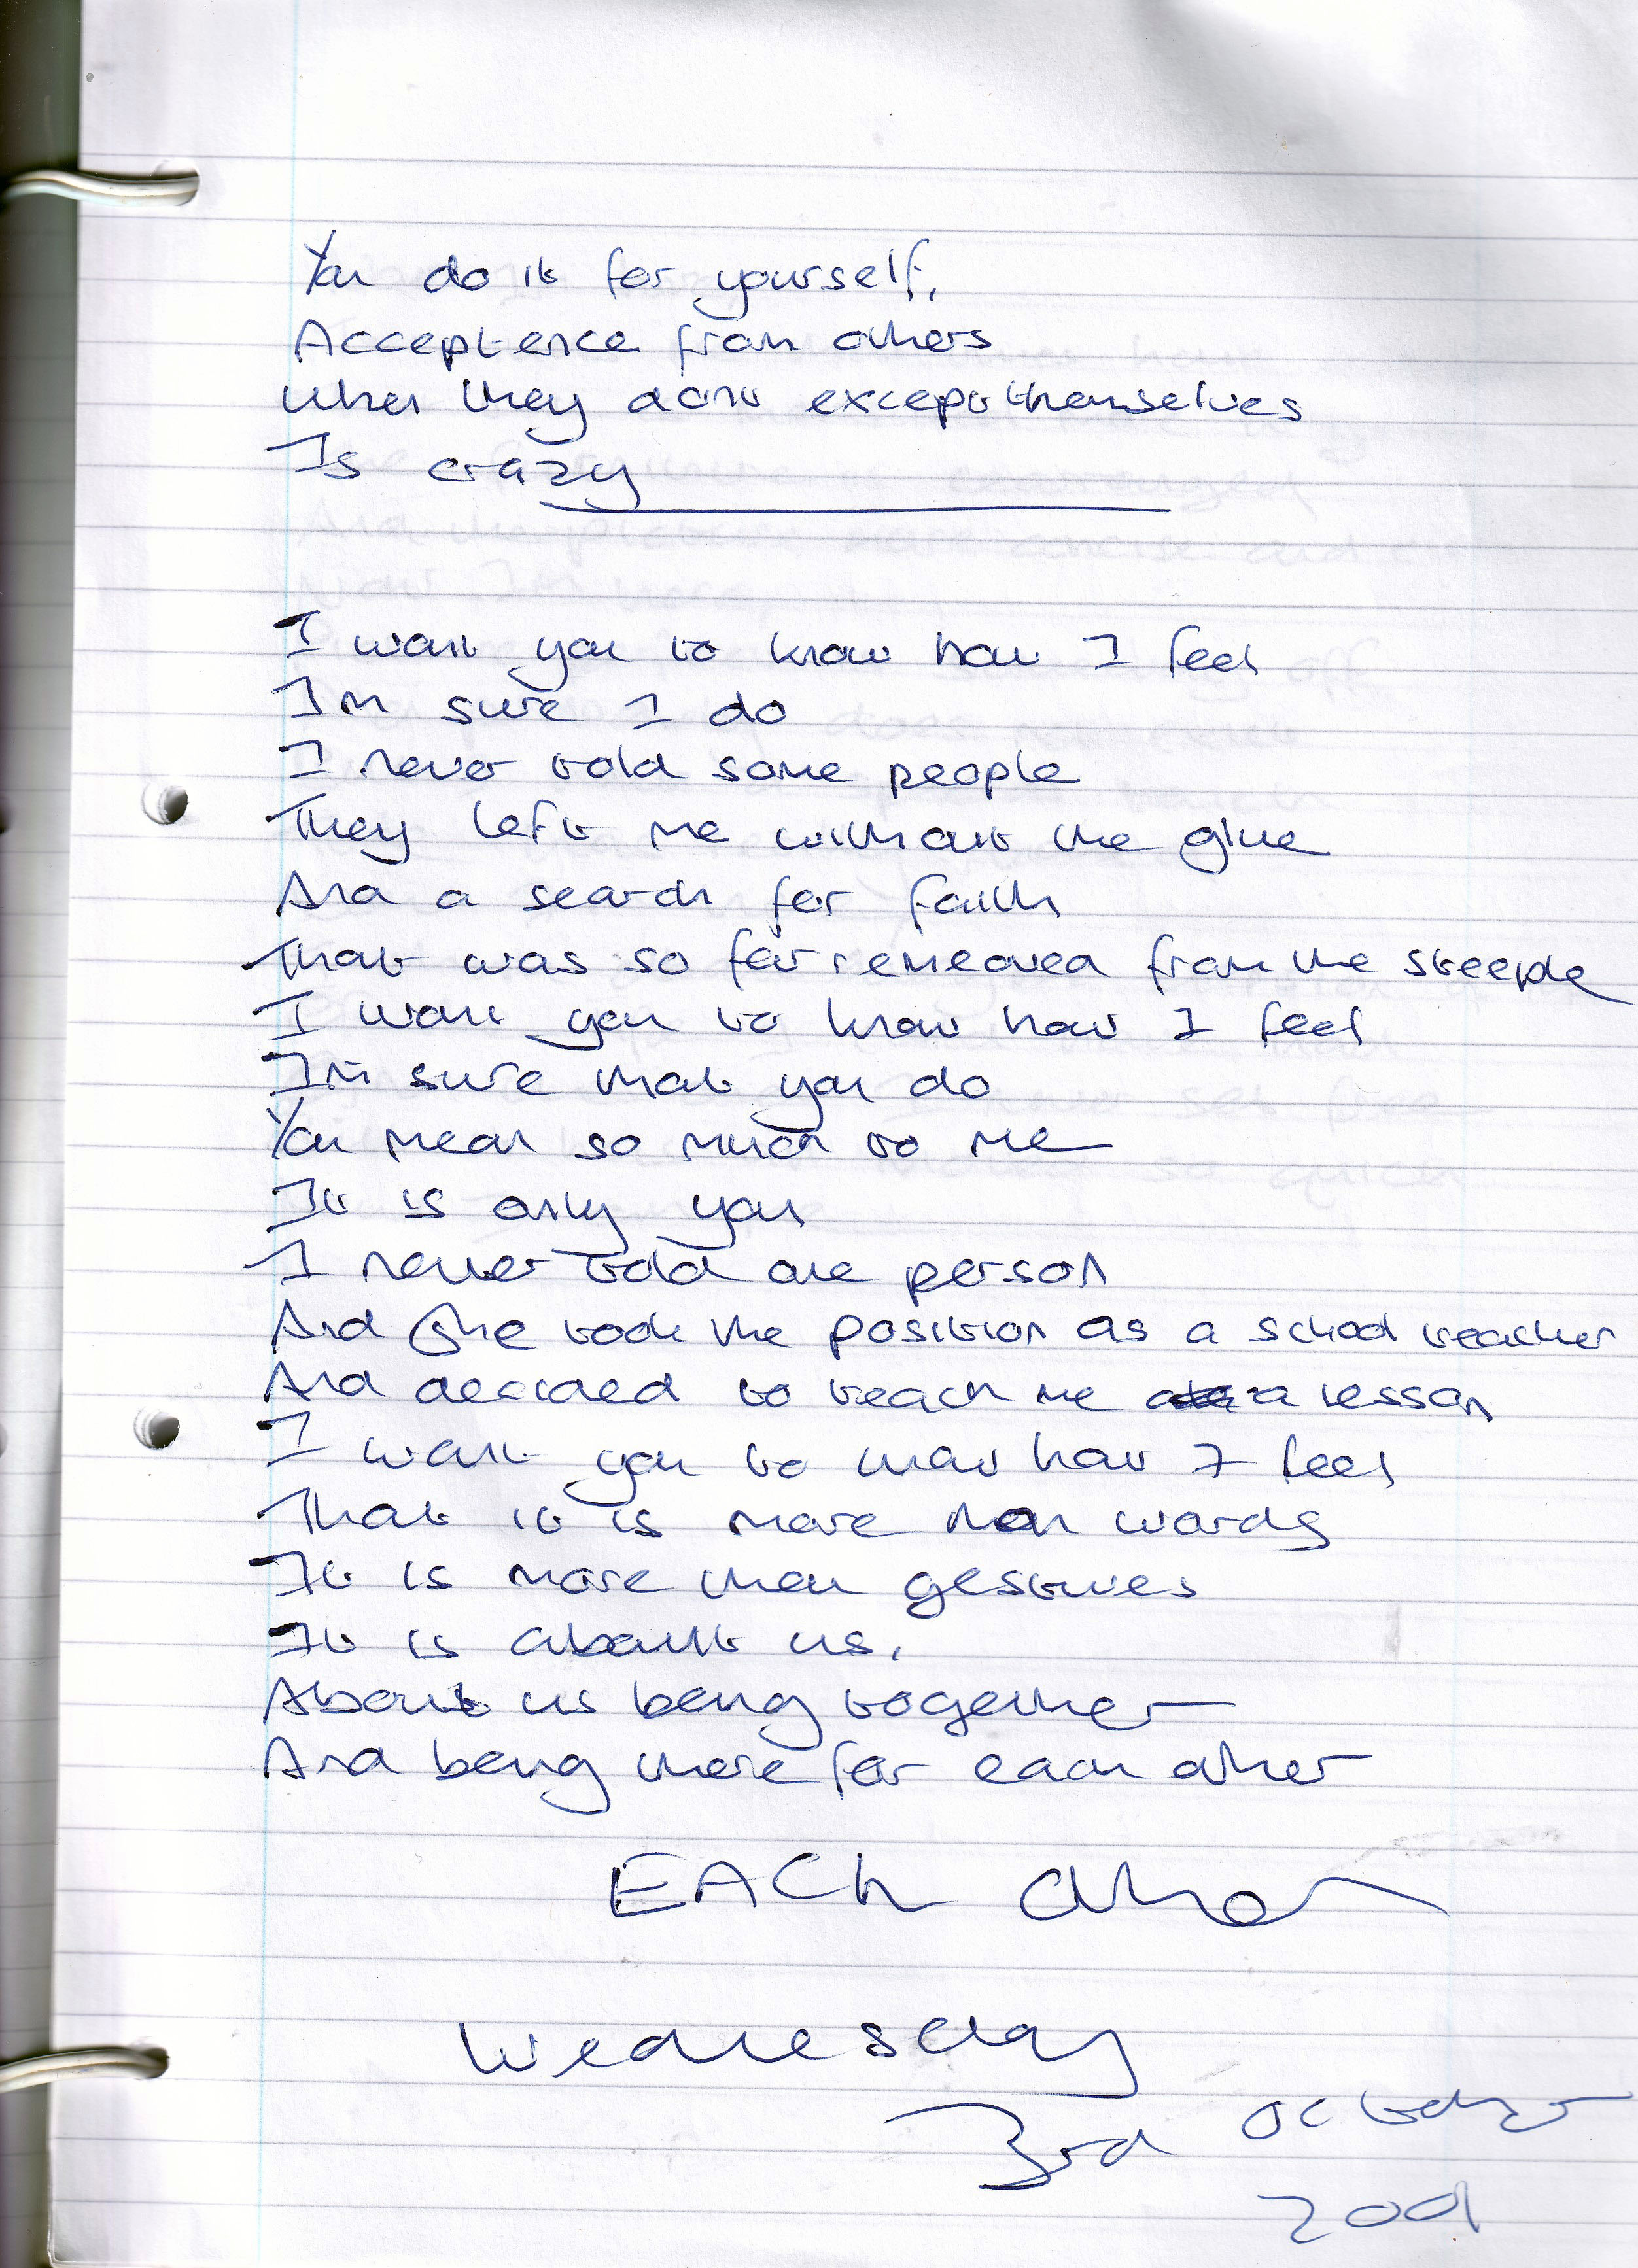 You do it for yourself,
Acceptence from others
When they dont except themselves
Is crazy
I want you to know how I feel
Im sure I do
I never told some people
They left me without the glue
And a search for faith
That was so far removed from the steeple
I want you to know how I feel
I'm sure that you do
You mean so much to me
It is only you
I never told one person
And she took the position as a school teacher
And decided to teach me a lesson
I want you to know how I feel
That it is more than words
It is more than gestures
It is about us.
About us being together
And being there for each other
EACh other
Wednesday
3rd October
2001